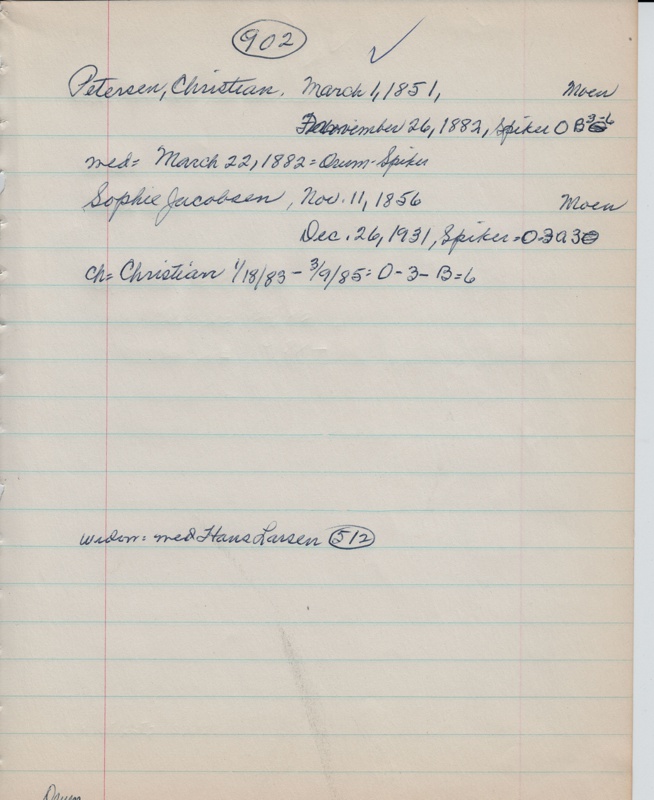 902 ✓
Petersen, Christian. March 1, 1851, Moen
November 26, 1882, Spiker O B 3=6
med= March 22, 1882=Orum-Spiker
Sophie Jacobsen, Nov. 11, 1856 Moen
Dec. 26, 1931, Spiker=O-3 A 3
ch= Christian 1/18/83 - 3/9/85= O-3-B=6
widow= med Hans Larsen 512
Orum